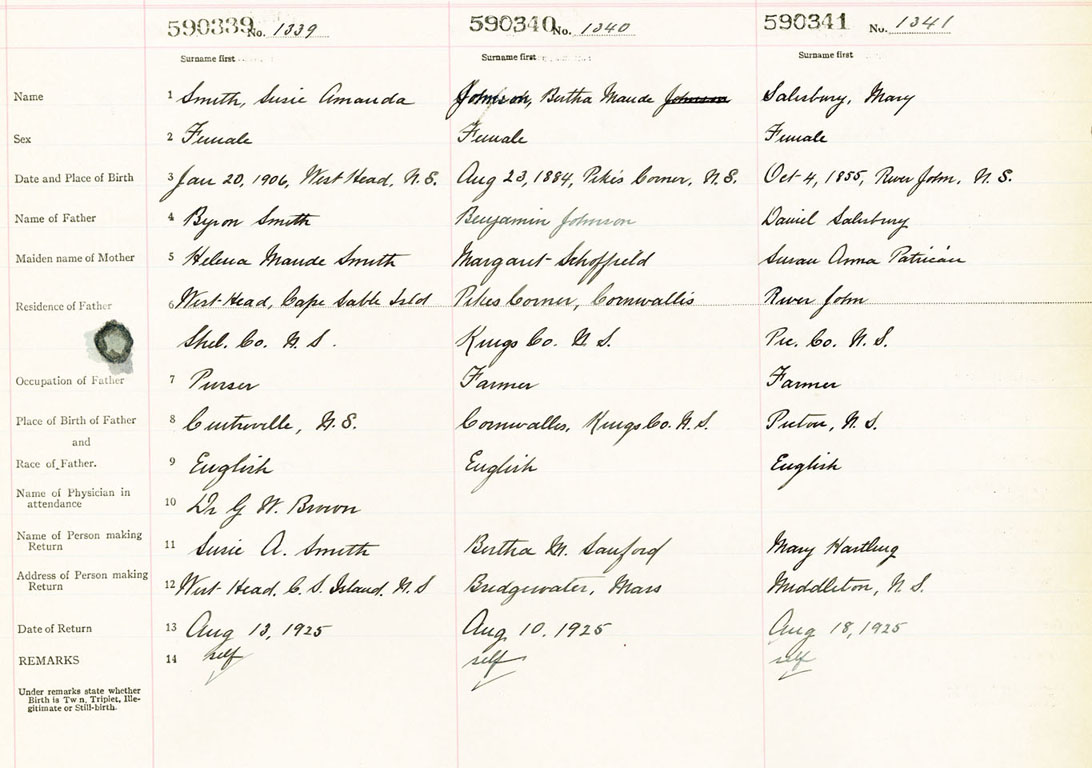 590339 No. 1339 590340 No. 1340 590341 No. 1341
Surname first Surname first Surname first
Name 1 Smith, Susie Amanda Johnson, Bertha Maude Johnson Salisbury, Mary
Sex 2 Female Female Female
Date and Place of Birth 3 Jan 20, 1906, West Head, N.S. Aug 23, 1884, Pikes Corner, N.S. Oct 4, 1855, River John, N.S.
Name of Father 4 Byron Smith Benjamin Johnson Daniel Salisbury
Maiden name of Mother 5 Helena Maude Smith Margaret Schoffield Susan Anna
Residence of Father 6 West Head, Cape Sable Isld Pikes Corner, Cornwallis River John
Shel. Co. N.S. Kings Co. N.S. Pic. Co. N.S.
Occupation of Father 7 Purser Farmer Farmer
Place of Birth of Father 8 Centreville, N.S. Cornwallis, Kings Co. N.S. Pictou, N.S.
and
Race of Father. 9 English English English
Name of Physician in
attendance 10 Dr G W. Brown
Name of Person making
Return 11 Susie A. Smith Bertha M. Sanford Mary Hartling
Address of Person making
Return 12 West Head, C. S. Island. N.S Bridgewater, Mass Middleton, N.S.
Date of Return 13 Aug 13, 1925 Aug 10. 1925 Aug 18, 1925
REMARKS 14 self self self
Under remarks state whether
Birth is Tw n, Triplet, Ille-
gitimate or Still-birth.